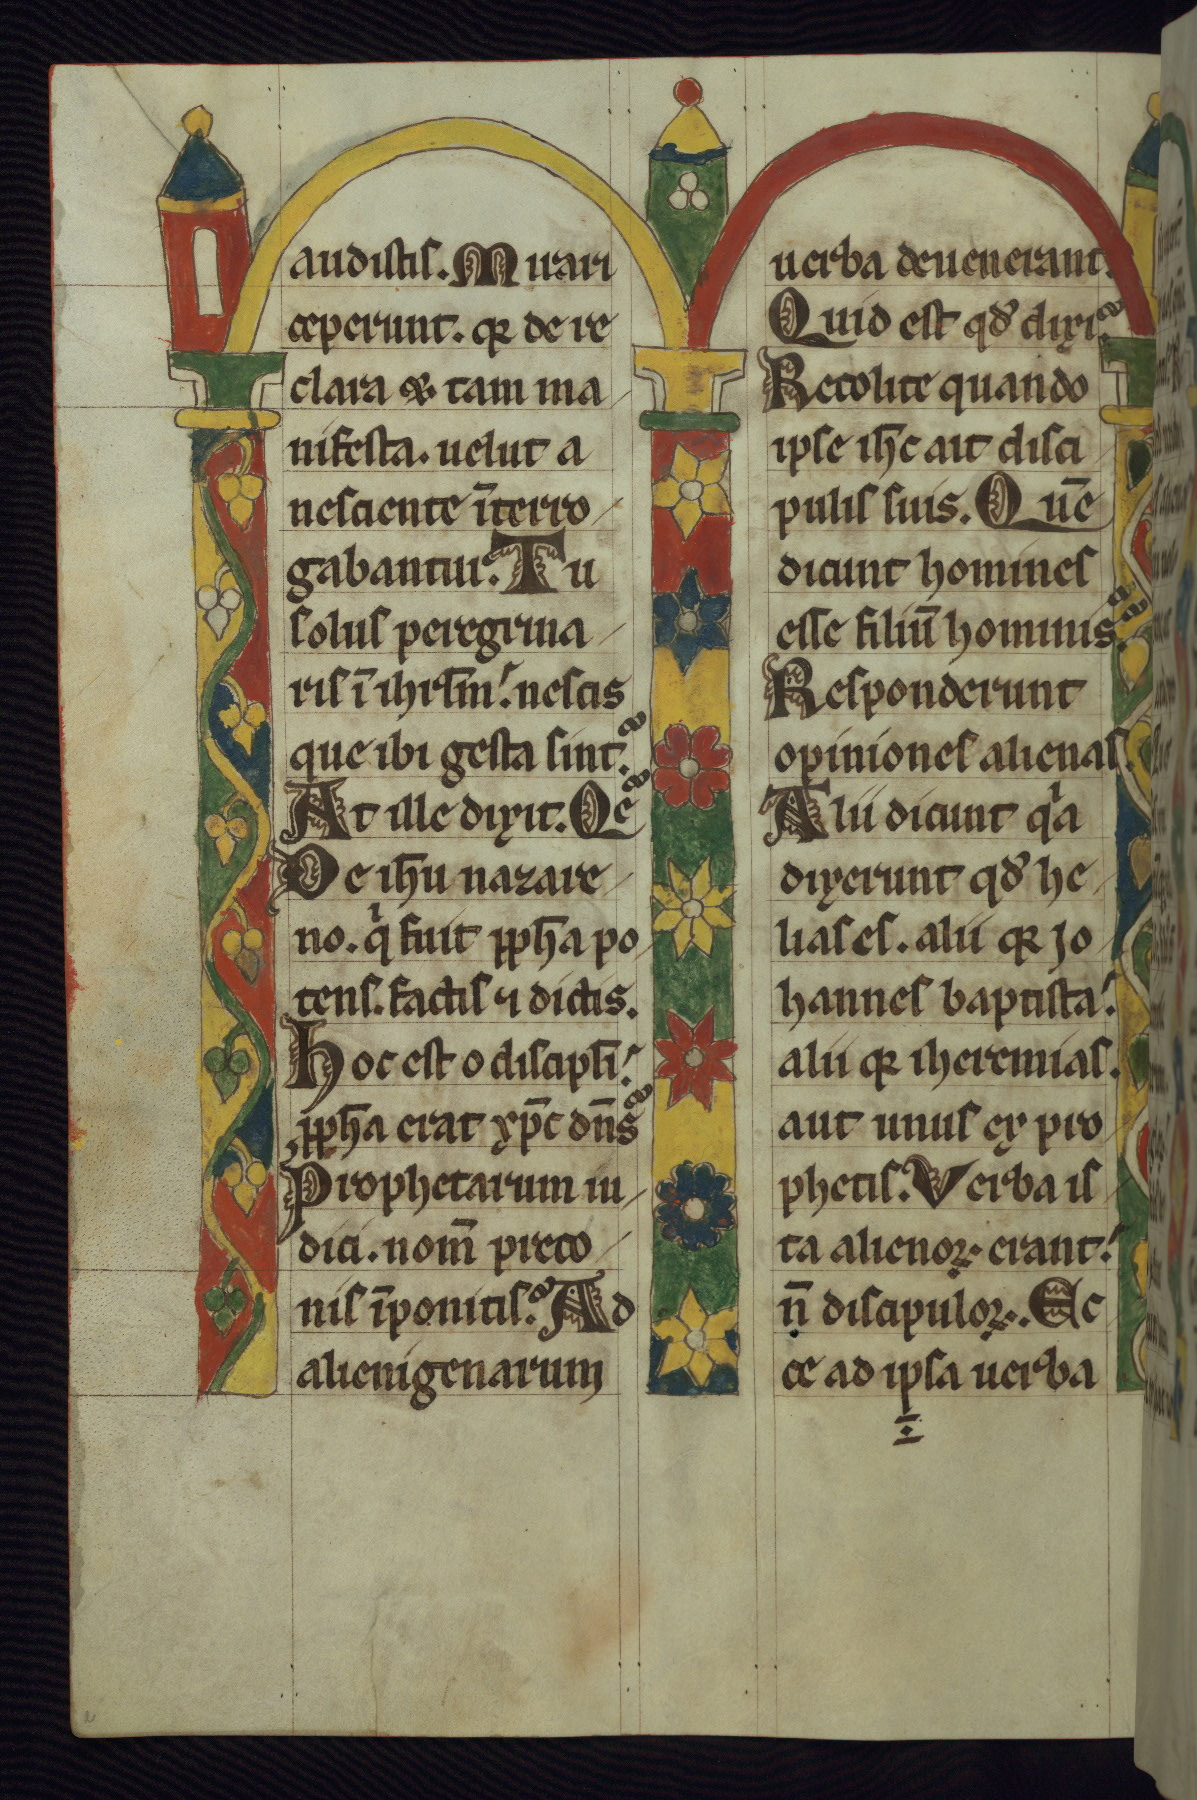 audistis. Mirari
ceperunt. qꝛ de re
clara ⁊ tam ma
nifesta. uelut a
nesciente īterro
gabantur. Tu
solus peregrina
ris ī ihrlm̄? nescis
que ibi gesta sint?
At ille dixit. Qē?
De ihū nazare
no. qⁱ fuit ꝓph̄a po
tens. factis ⁊ dictis.
Hoc est o discipli?
ꝓph̄a erat xp̄c dn̄s?
Prophetarum iu
dici. nom̄ preco
nis īponitis? Ad
alienigenarum
uerba deuenerant.
Quid est qđ dixi?
Recolite quando
ipse ih̄c ait disci
pulis suis. Quē
dicunt homines
esse filiū hominis?
Responderunt
opiniones alienas.
Alii dicunt qᵃ
dixerunt qđ he
lias es. alii qꝛ Jo
hannes baptista.
alii qꝛ iheremias.
aut unus ex pro
phetis. Verba is
ta alienoꝝ erant.
n̄ discipuloꝝ. Ec
ce ad ipsa uerba
2